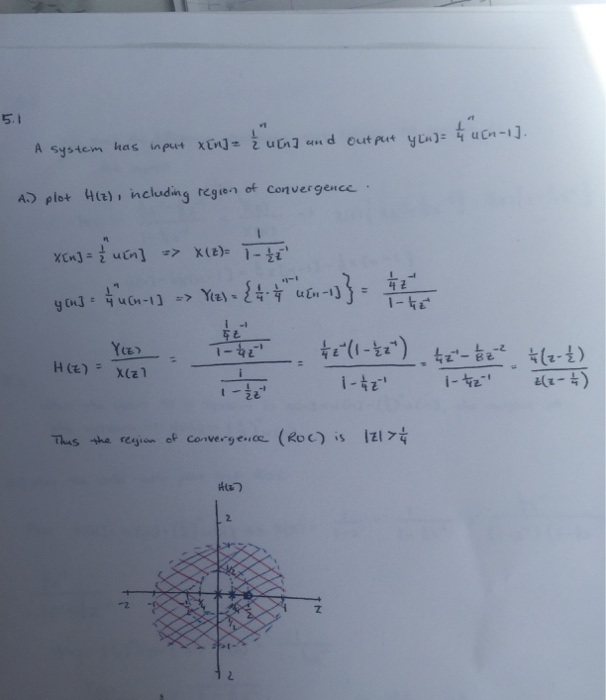 5.1
A system has input x[n] = 1/2^n u[n] and output y[n] = 1/4^n u[n-1].
A.) plot H(z), including region of convergence.
x[n] = 1/2^n u[n] => X(z) = 1/(1 - 1/2 z^-1)
y[n] = 1/4^n u[n-1] => Y(z) = {1/4 · 1/4^(n-1) u[n-1]} = (1/4 z^-1)/(1 - 1/4 z^-1)
H(z) = Y(z)/X(z) = ((1/4 z^-1)/(1 - 1/4 z^-1))/(1/(1 - 1/2 z^-1)) = (1/4 z^-1 (1 - 1/2 z^-1))/(1 - 1/4 z^-1) = (1/4 z^-1 - 1/8 z^-2)/(1 - 1/4 z^-1) = (1/4 (z - 1/2))/(z(z - 1/4))
Thus the region of convergence (ROC) is |z| > 1/4
H(z)
2
1/2
-2 -1 1/4 1/2 1 2
-1
2